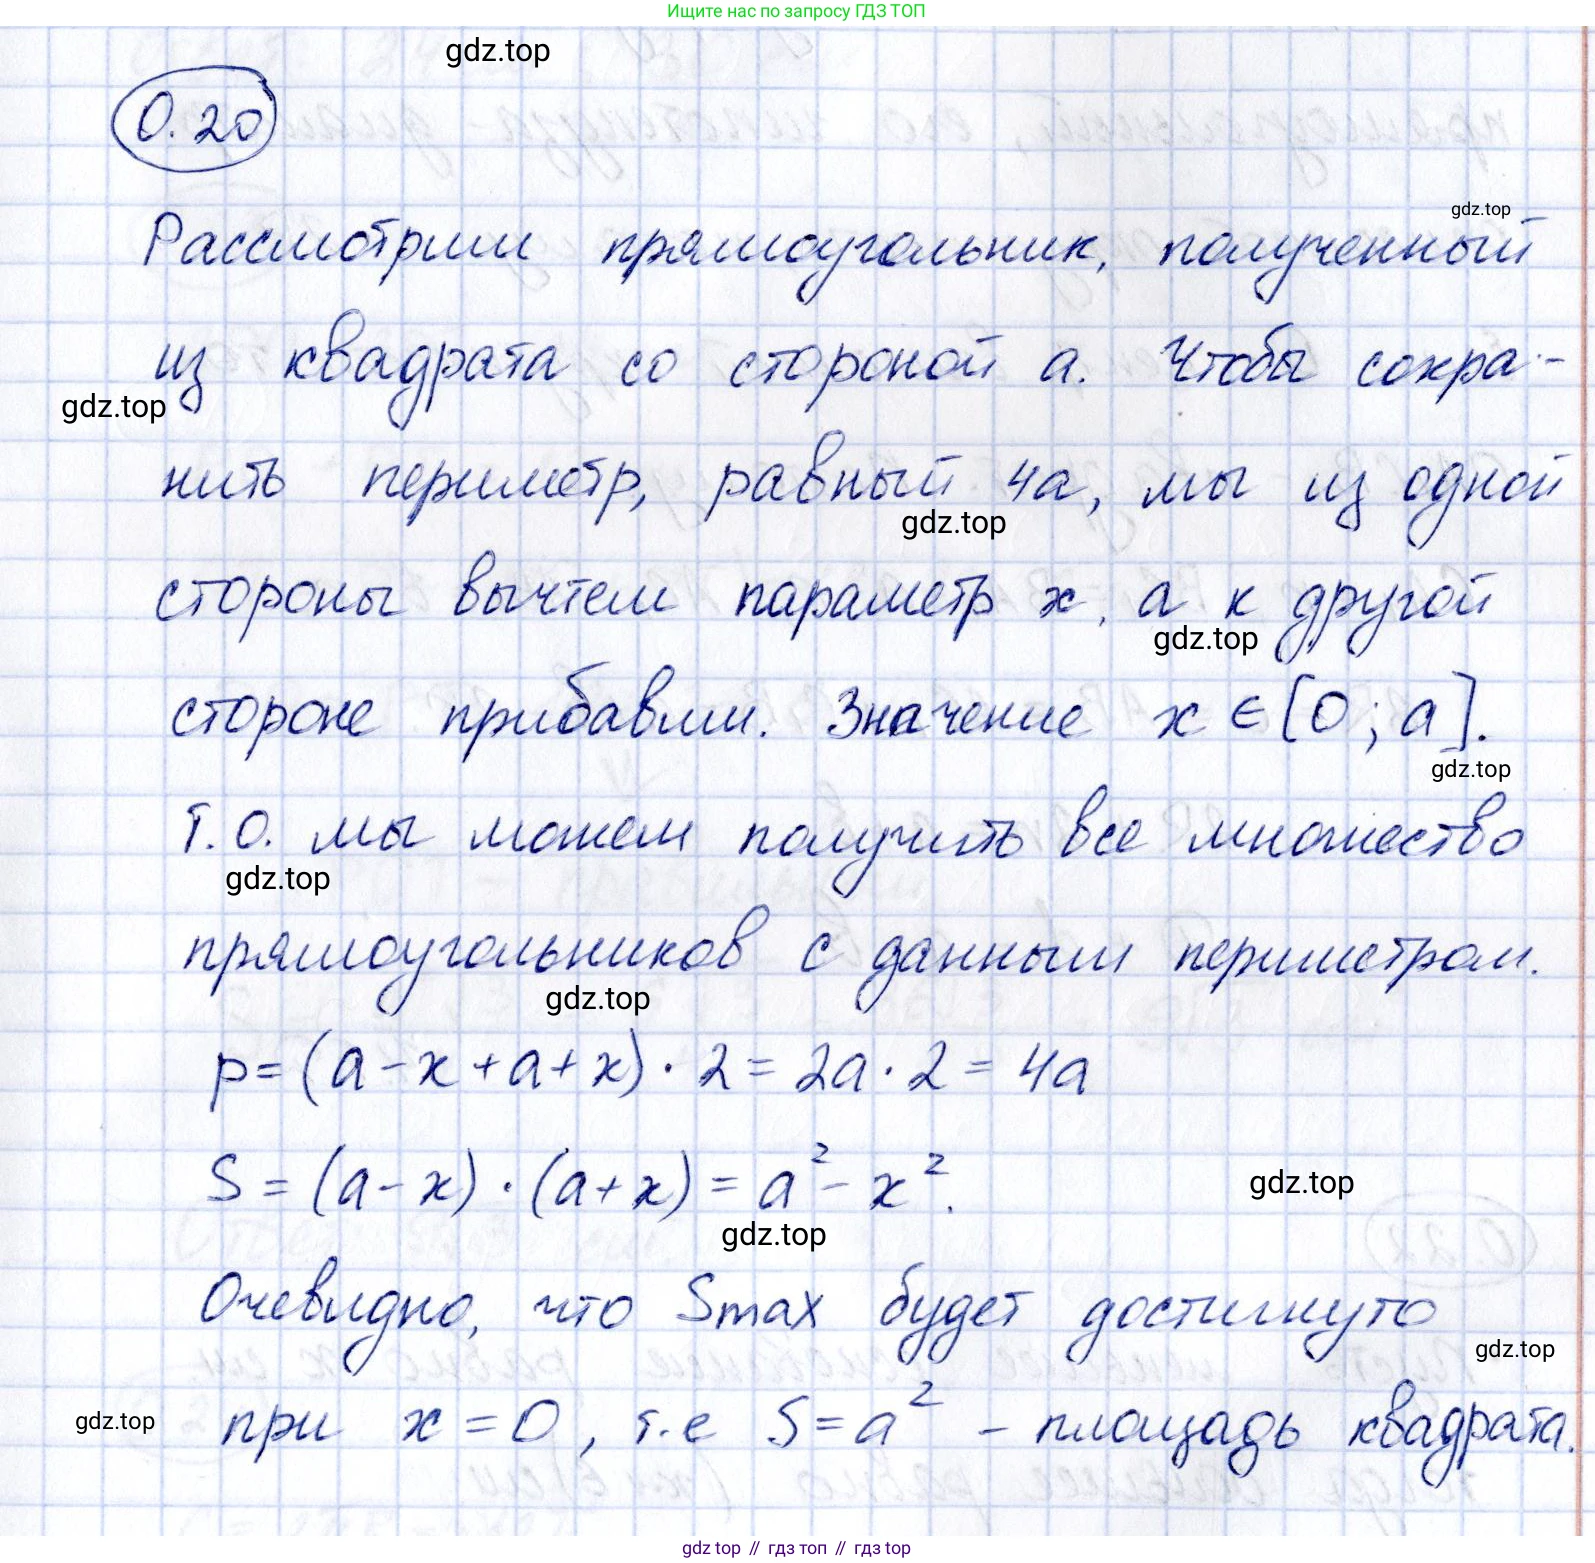 Ищите нас по запросу ГДЗ ТОП
gdz.top
0.20
gdz.top
Рассмотрим прямоугольник, полученный
из квадрата со стороной a. Чтобы сохра-
gdz.top
нить периметр, равный 4a, мы из одной
gdz.top
стороны вычтем параметр x, а к другой
gdz.top
стороне прибавим. Значение x ∈ [0; a].
gdz.top
Т.О. мы можем получить все множество
gdz.top
прямоугольников с данным периметром.
gdz.top
p = (a - x + a + x) · 2 = 2a · 2 = 4a
S = (a - x) · (a + x) = a² - x².
gdz.top
gdz.top
Очевидно, что Smax будет достигнуто
gdz.top
при x = 0, т.е S = a² - площадь квадрата.
gdz.top
gdz top // гдз топ // гдз top